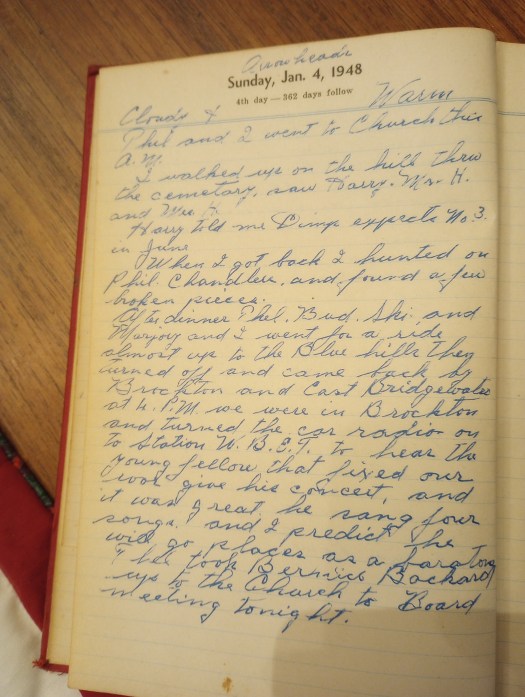 Arrowheads
Sunday, Jan. 4, 1948
4th day — 362 days follow
Cloudy & Warm
Phil and I went to Church this
A.M.
I walked up on the hill thru
the cemetary. saw Harry. Mr. H.
and Mrs. H.
Harry told me Dimp expects No. 3.
in June
When I got back I hunted on
Phil. Chandlers. and found a few
broken pieces.
After dinner Phil. Bud. Ski. and
Marjory and I went for a ride
almost up to the Blue hills they
turned off and came back by
Brockton and East Bridgewater
at 4. P.M. we were in Brockton
and turned the car radio on
to Station W.B.E.T. to hear the
young fellow that fixed our
roof give his concert, and
it was great, he sang four
songs. and I predict he
will go places as a baratone
he took Bernice Backard
up to the Church to Board
meeting tonight.